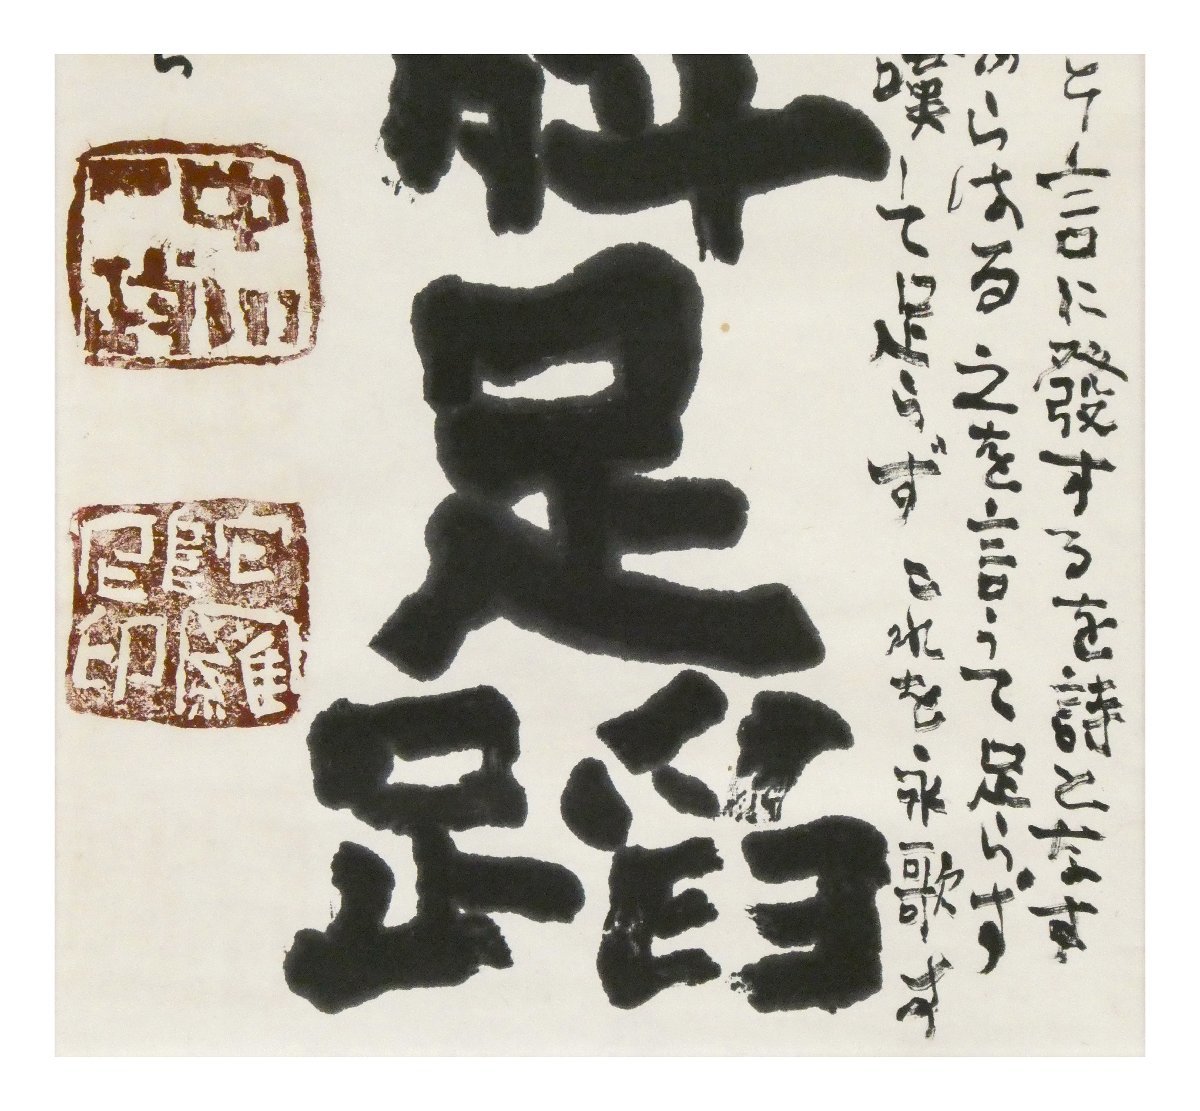 とし言に發するを詩となす
あらはる 之を言うて足らず
嘆して足らず これを永歌す
足蹈
中川
一政